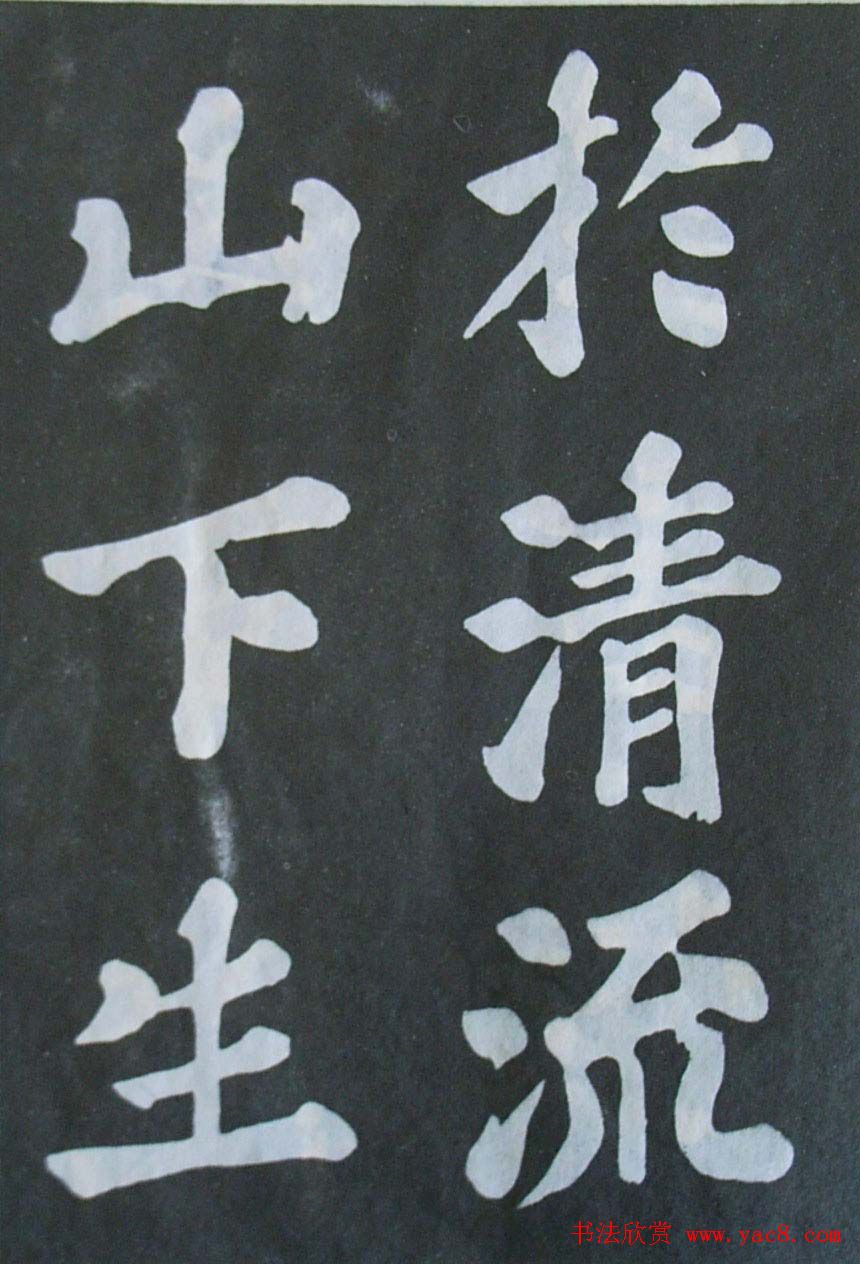 於清流
山下生
书法欣赏 www.yac8.com